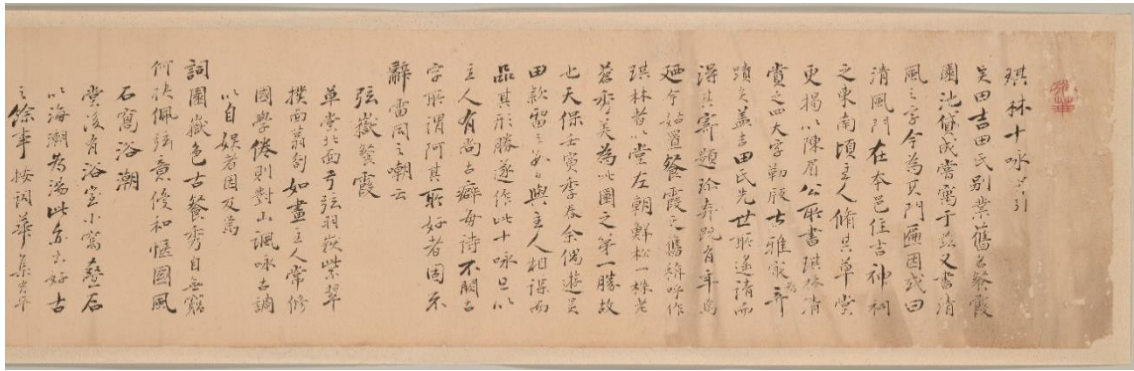 琪林十咏并引
吉田氏別業舊名餐霞
園池貸成嘗寓于茲又書清
風之字今為其門匾因或曰
清風門在本邑住吉神祠
之東南頃主人脩其草堂
更揭以陳眉公所書琪林清
賞之四大字勒殷古雅
蹟矣蓋吉田氏先世
得其寄題珍弄既有年
廼今姑置餐霞之舊稱呼作
琪林者以堂左朝鮮松一株老
蒼秀美為此園之第一勝故
也天保壬寅季春余偶遊
田款留之與主人相謀而
品其形勝遂作此十咏且以
主人有尚古癖每詩不關古
字所謂阿其所好者因不
辭雷同之嘲云
弦嶽餐霞
草堂於面弦羽嶽紫翠
撲面蓊匌如畫主人常修
國學倦則對山諷咏古調
以自娛者因及焉
詞園嶽色古餐秀自無窮
何訣佩弦意優和愜國風
石寫浴潮
堂後有浴室小寫石
以海潮為湯此亦好古
之餘事按詞華集